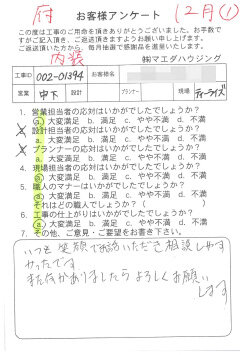 府 12月①
お客様アンケート
この度は工事のご用命を頂きありがとうございました。お手数で
すがご記入頂き、ご返送頂きますようお願い申し上げます。
ご返送頂いた方から、毎月抽選で感謝品を進呈いたします。
内装 ㈱マエダハウジング
工事ID 002-01394 お客様名
営業 中下 設計 プランナー 現場 ティーライズ
1. 営業担当者の応対はいかがでしたでしょうか?
a. 大変満足 b. 満足 c. やや不満 d. 不満
2. 設計担当者の応対はいかがでしたでしょうか?
a. 大変満足 b. 満足 c. やや不満 d. 不満
3. プランナーの応対はいかがでしたでしょうか?
a. 大変満足 b. 満足 c. やや不満 d. 不満
4. 現場担当者の応対はいかがでしたでしょうか?
a. 大変満足 b. 満足 c. やや不満 d. 不満
5. 職人のマナーはいかがでしたでしょうか?
a. 大変満足 b. 満足 c. やや不満 d. 不満
それはどの職人でしょうか? ( )
6. 工事の仕上がりはいかがでしたでしょうか?
a. 大変満足 b. 満足 c. やや不満 d. 不満
7. その他、ご意見・ご要望をお書き下さい。
いつも笑顔で対応いただき相談しやす
かったです
また何かありましたらよろしくお願い
します